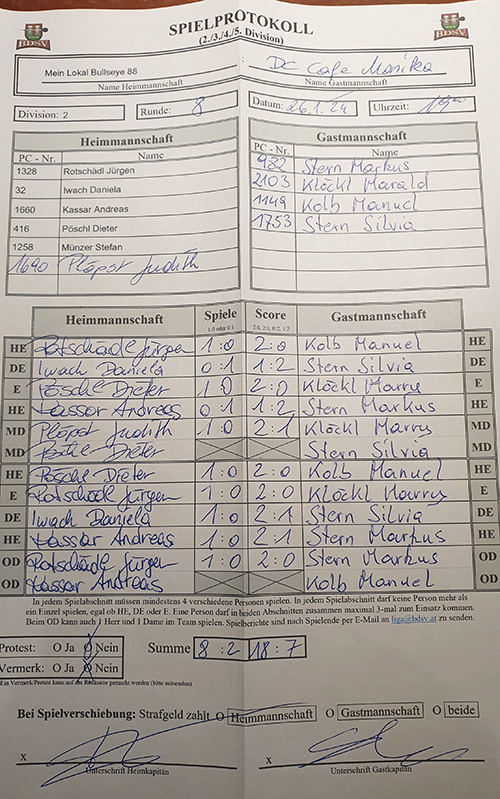 SPIELPROTOKOLL
(2./3./4./5. Division)
BDSV BDSV
Mein Lokal Bullseye 88 DC Cafe Monika
Name Heimmannschaft Name Gastmannschaft
Division: 2 Runde: 8 Datum: 26.1.24 Uhrzeit: 19:00
Heimmannschaft Gastmannschaft
PC - Nr. Name PC - Nr. Name
1328 Rotschädl Jürgen 982 Stern Markus
32 Iwach Daniela 2103 Klöckl Harald
1660 Kassar Andreas 1149 Kolb Manuel
416 Pöschl Dieter 1753 Stern Silvia
1258 Münzer Stefan
1690 Plöpst Judith
Heimmannschaft Spiele Score Gastmannschaft
1:0 oder 0:1 2:0, 2:1, 0:2, 1:2
HE Rotschädl Jürgen 1:0 2:0 Kolb Manuel HE
DE Iwach Daniela 0:1 1:2 Stern Silvia DE
E Pöschl Dieter 1:0 2:0 Klöckl Harry E
HE Kassar Andreas 0:1 1:2 Stern Markus HE
MD Plöpst Judith 1:0 2:1 Klöckl Harry MD
MD Dieter Stern Silvia MD
HE Pöschl Dieter 1:0 2:0 Kolb Manuel HE
E Rotschädl Jürgen 1:0 2:0 Klöckl Harry E
DE Iwach Daniela 1:0 2:1 Stern Silvia DE
HE Kassar Andreas 1:0 2:1 Stern Markus HE
OD Rotschädl Jürgen 1:0 2:0 Stern Markus OD
OD Kassar Andreas Kolb Manuel OD
In jedem Spielabschnitt müssen mindestens 4 verschiedene Personen spielen. In jedem Spielabschnitt darf keine Person mehr als
ein Einzel spielen, egal ob HE, DE oder E. Eine Person darf in beiden Abschnitten zusammen maximal 3-mal zum Einsatz kommen.
Beim OD kann auch 1 Herr und 1 Dame im Team spielen. Spielberichte sind nach Spielende per E-Mail an liga@bdsv.at zu senden.
Protest: O Ja O Nein Summe 8 : 2 18 : 7
Vermerk: O Ja O Nein
Ein Vermerk/Protest kann auf der Rückseite gemacht werden (bitte mitsenden)
Bei Spielverschiebung: Strafgeld zahlt O Heimmannschaft O Gastmannschaft O beide
x x
Unterschrift Heimkapitän Unterschrift Gastkapitän